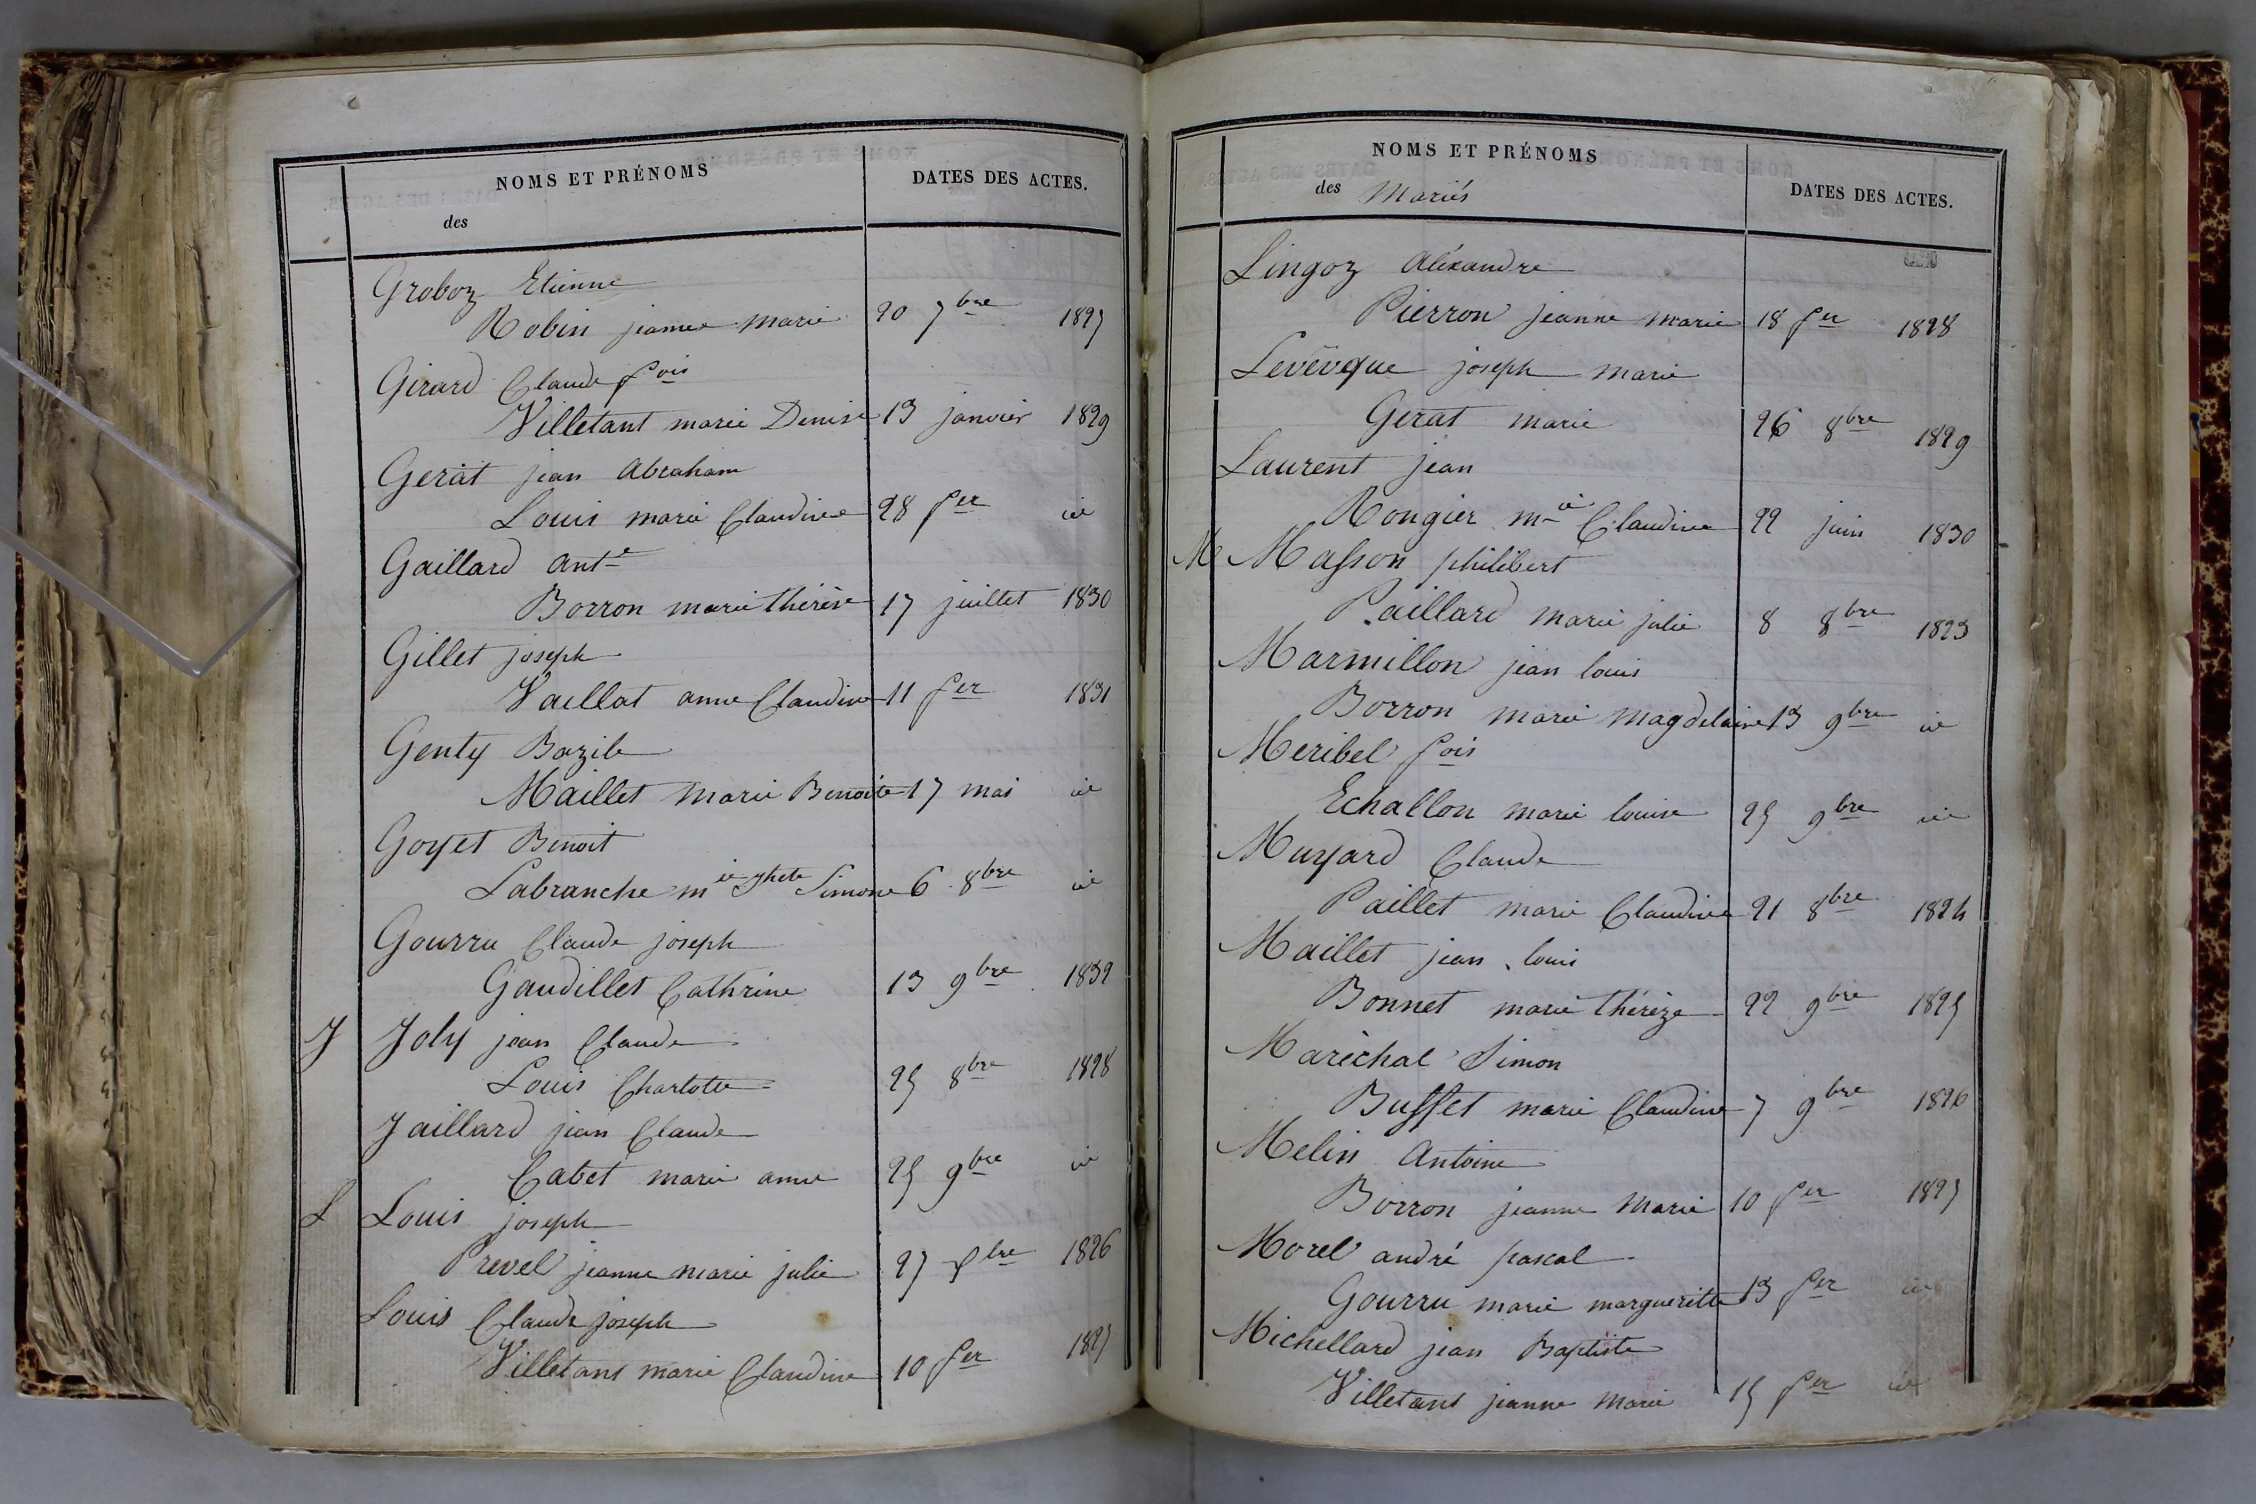 NOMS ET PRÉNOMS
des
DATES DES ACTES.
Groboz Etienne
Robin jeanne marie 20 7bre 1827
Girard Claude fois
Villetant marie Denise 13 janvier 1829
Gerat jean abraham
Louis marie Claudine 28 fer id
Gaillard ante
Borron marie thérèse 17 juillet 1830
Gillet joseph
Vaillat anne Claudine 11 fer 1831
Genty Bazile
Maillet marie Benoite 17 mai id
Goyet Benoit
Labranche mie Simone 6 8bre id
Gourru Claude joseph
Gaudillet Cathrine 13 9bre 1832
J Joly jean Claude
Louis Charlotte 25 8bre 1828
Jaillard jean Claude
Cabet marie anne 25 9bre id
L Louis joseph
Prevel jeanne marie julie 27 1826
Louis Claude joseph
Villetant marie Claudine 10 fer 1827
NOMS ET PRÉNOMS
des Mariés
DATES DES ACTES.
Lingoz aléxandre
Pierron jeanne marie 18 fer 1828
Levêvque joseph marie
Gerat marie 26 8bre 1829
Laurent jean
Rougier mie Claudine 22 juin 1830
M Masson philibert
Paillard marie julie 8 8bre 1823
Marmillon jean louis
Borron marie magdelaine 13 9bre id
Meribel fois
Echallon marie louise 25 9bre id
Muyard Claude
Paillet marie Claudine 21 8bre 1824
Maillet jean louis
Bonnet marie thérèze 22 9bre 1825
Maréchal Simon
Buffet marie Claudine 7 9bre 1826
Melin Antoine
Borron jeanne marie 10 fer 1827
Morel andré pascal
Gourru marie margueritte 13 fer id
Michellard jean Baptiste
Villetant jeanne marie 15 fer id